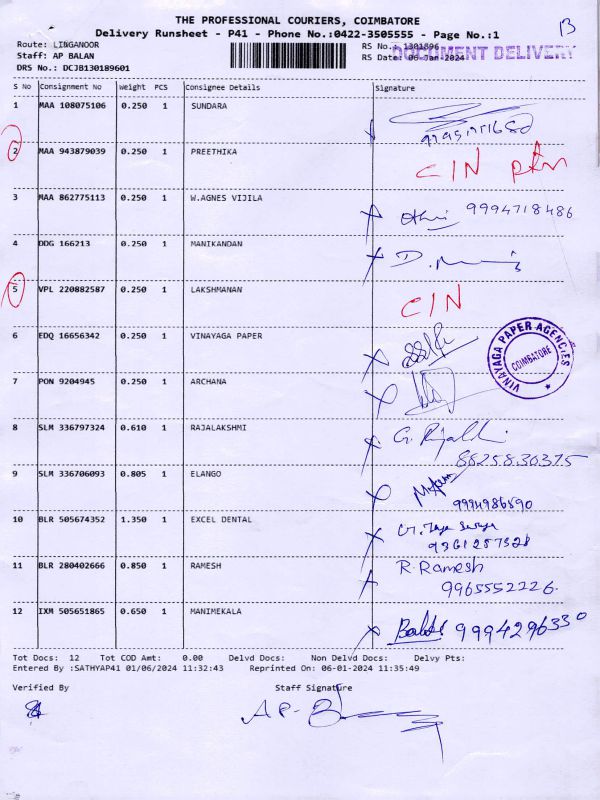 THE PROFESSIONAL COURIERS, COIMBATORE
Delivery Runsheet - P41 - Phone No.:0422-3505555 - Page No.:1
B
Route: LINGANOOR
Staff: AP BALAN
DRS No.: DCJB130189601
RS No.: 1301896
RS Date: 06-Jan-2024
DOCUMENT DELIVERY
S No Consignment No Weight PCS Consignee Details Signature
1 MAA 108075106 0.250 1 SUNDARA
2 MAA 943879039 0.250 1 PREETHIKA C/N
3 MAA 862775113 0.250 1 W.AGNES VIJILA 9994718486
4 DDG 166213 0.250 1 MANIKANDAN
5 VPL 220882587 0.250 1 LAKSHMANAN C/N
6 EDQ 16656342 0.250 1 VINAYAGA PAPER
VINAYAGA PAPER AGENCIES
COIMBATORE
7 PON 9204945 0.250 1 ARCHANA
8 SLM 336797324 0.610 1 RAJALAKSHMI
8825830375
9 SLM 336706093 0.805 1 ELANGO
9994986590
10 BLR 505674352 1.350 1 EXCEL DENTAL
9361257328
11 BLR 280402666 0.850 1 RAMESH R. Ramesh
9965552226.
12 IXM 505651865 0.650 1 MANIMEKALA 9994296330
Tot Docs: 12 Tot COD Amt: 0.00 Delvd Docs: Non Delvd Docs: Delvy Pts:
Entered By :SATHYAP41 01/06/2024 11:32:43 Reprinted On: 06-01-2024 11:35:49
Verified By Staff Signature
AP-B